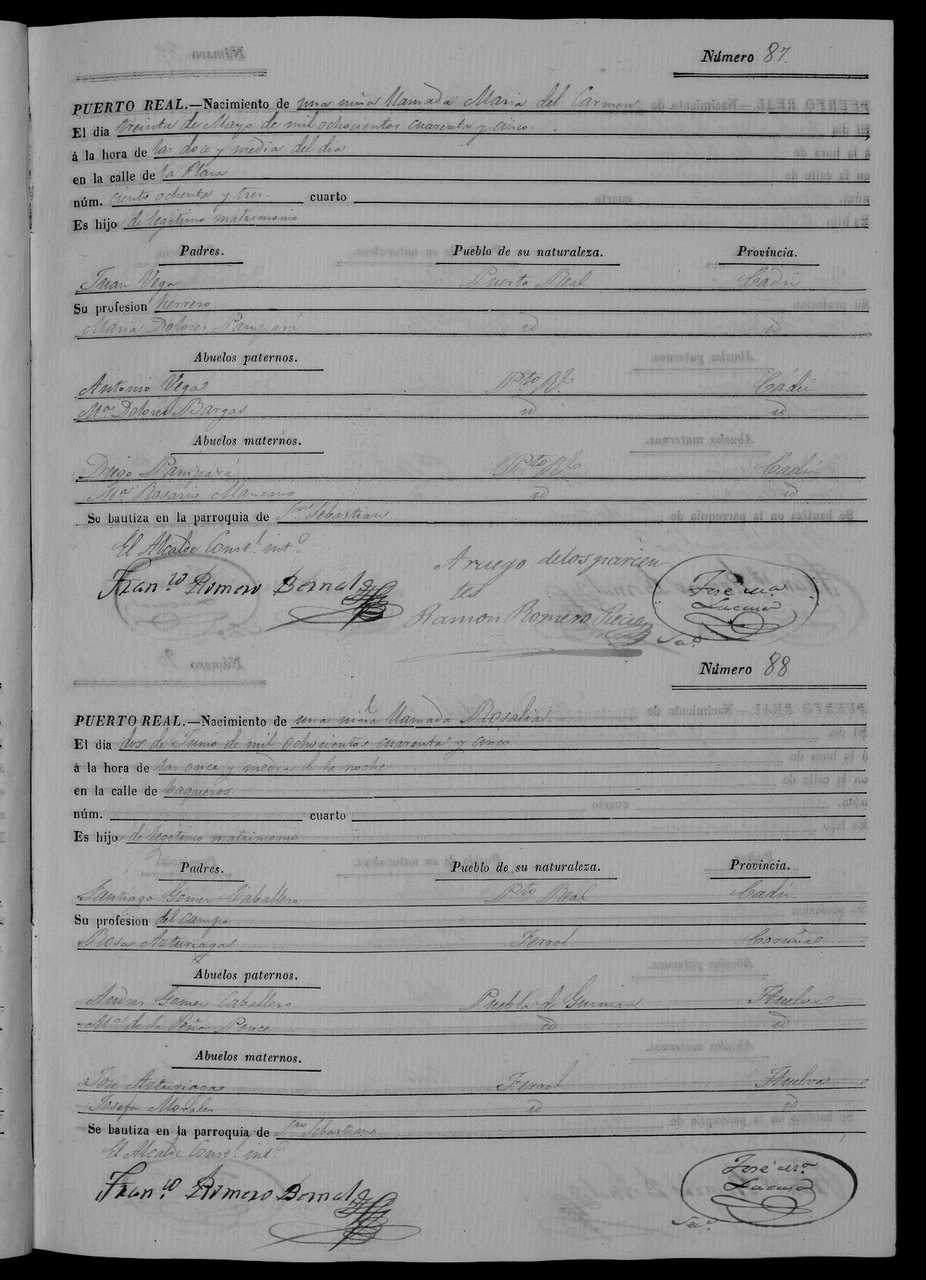 Número 87.
PUERTO REAL.—Nacimiento de una niña llamada Maria del Carmen
El dia treinta de Mayo de mil ochocientos cuarenta y cinco
á la hora de las doce y media del dia
en la calle de la Plaza
núm. ciento ochenta y tres cuarto
Es hijo de legitimo matrimonio
Padres. Pueblo de su naturaleza. Provincia.
Juan Vega Puerto Real Cadiz
Su profesion herrero
Maria Dolores id id
Abuelos paternos.
Antonio Vega Pto Rl Cádiz
Ma Dolores Bargas id id
Abuelos maternos.
Diego Pto Rl Cadiz
Ma Rosario id id
Se bautiza en la parroquia de Sn Sebastian
El Alcalde Constl intº
Franco Romero Bernal
A ruego de los parien
tes
Ramon Romero
José Ma
Lucena
Seco
Número 88
PUERTO REAL.—Nacimiento de una niña llamada Rosalia
El dia dos de Junio de mil ochocientos cuarenta y cinco
á la hora de las once y media de la noche
en la calle de Baqueros
núm. cuarto
Es hijo de legitimo matrimonio
Padres. Pueblo de su naturaleza. Provincia.
Santiago Gomez Caballero Pto Real Cadiz
Su profesion del campo
Rosa Asturiagas Ferrol Coruña
Abuelos paternos.
Andres Gomez Caballero Puebla de Guzman Huelva
Ma de la Peña Ponce id id
Abuelos maternos.
José Asturiagas Ferrol Huelva
Josefa Morales id id
Se bautiza en la parroquia de Sn Sebastian
El Alcalde Constl intº
Franco Romero Bernal
José Ma
Lucena
Seco